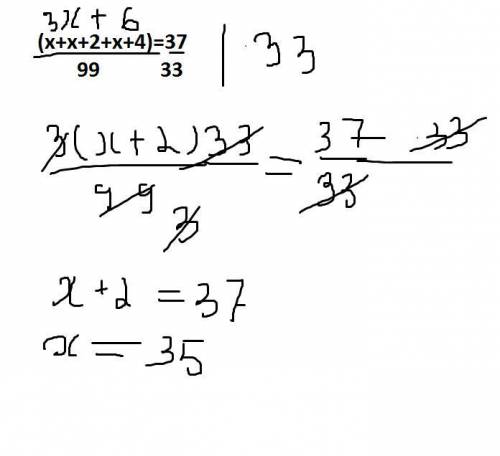 3x + 6
(x+x+2+x+4)=37 | 33
99 33
3(x+2)33 = 37 33
99 3 33
x+2 = 37
x = 35